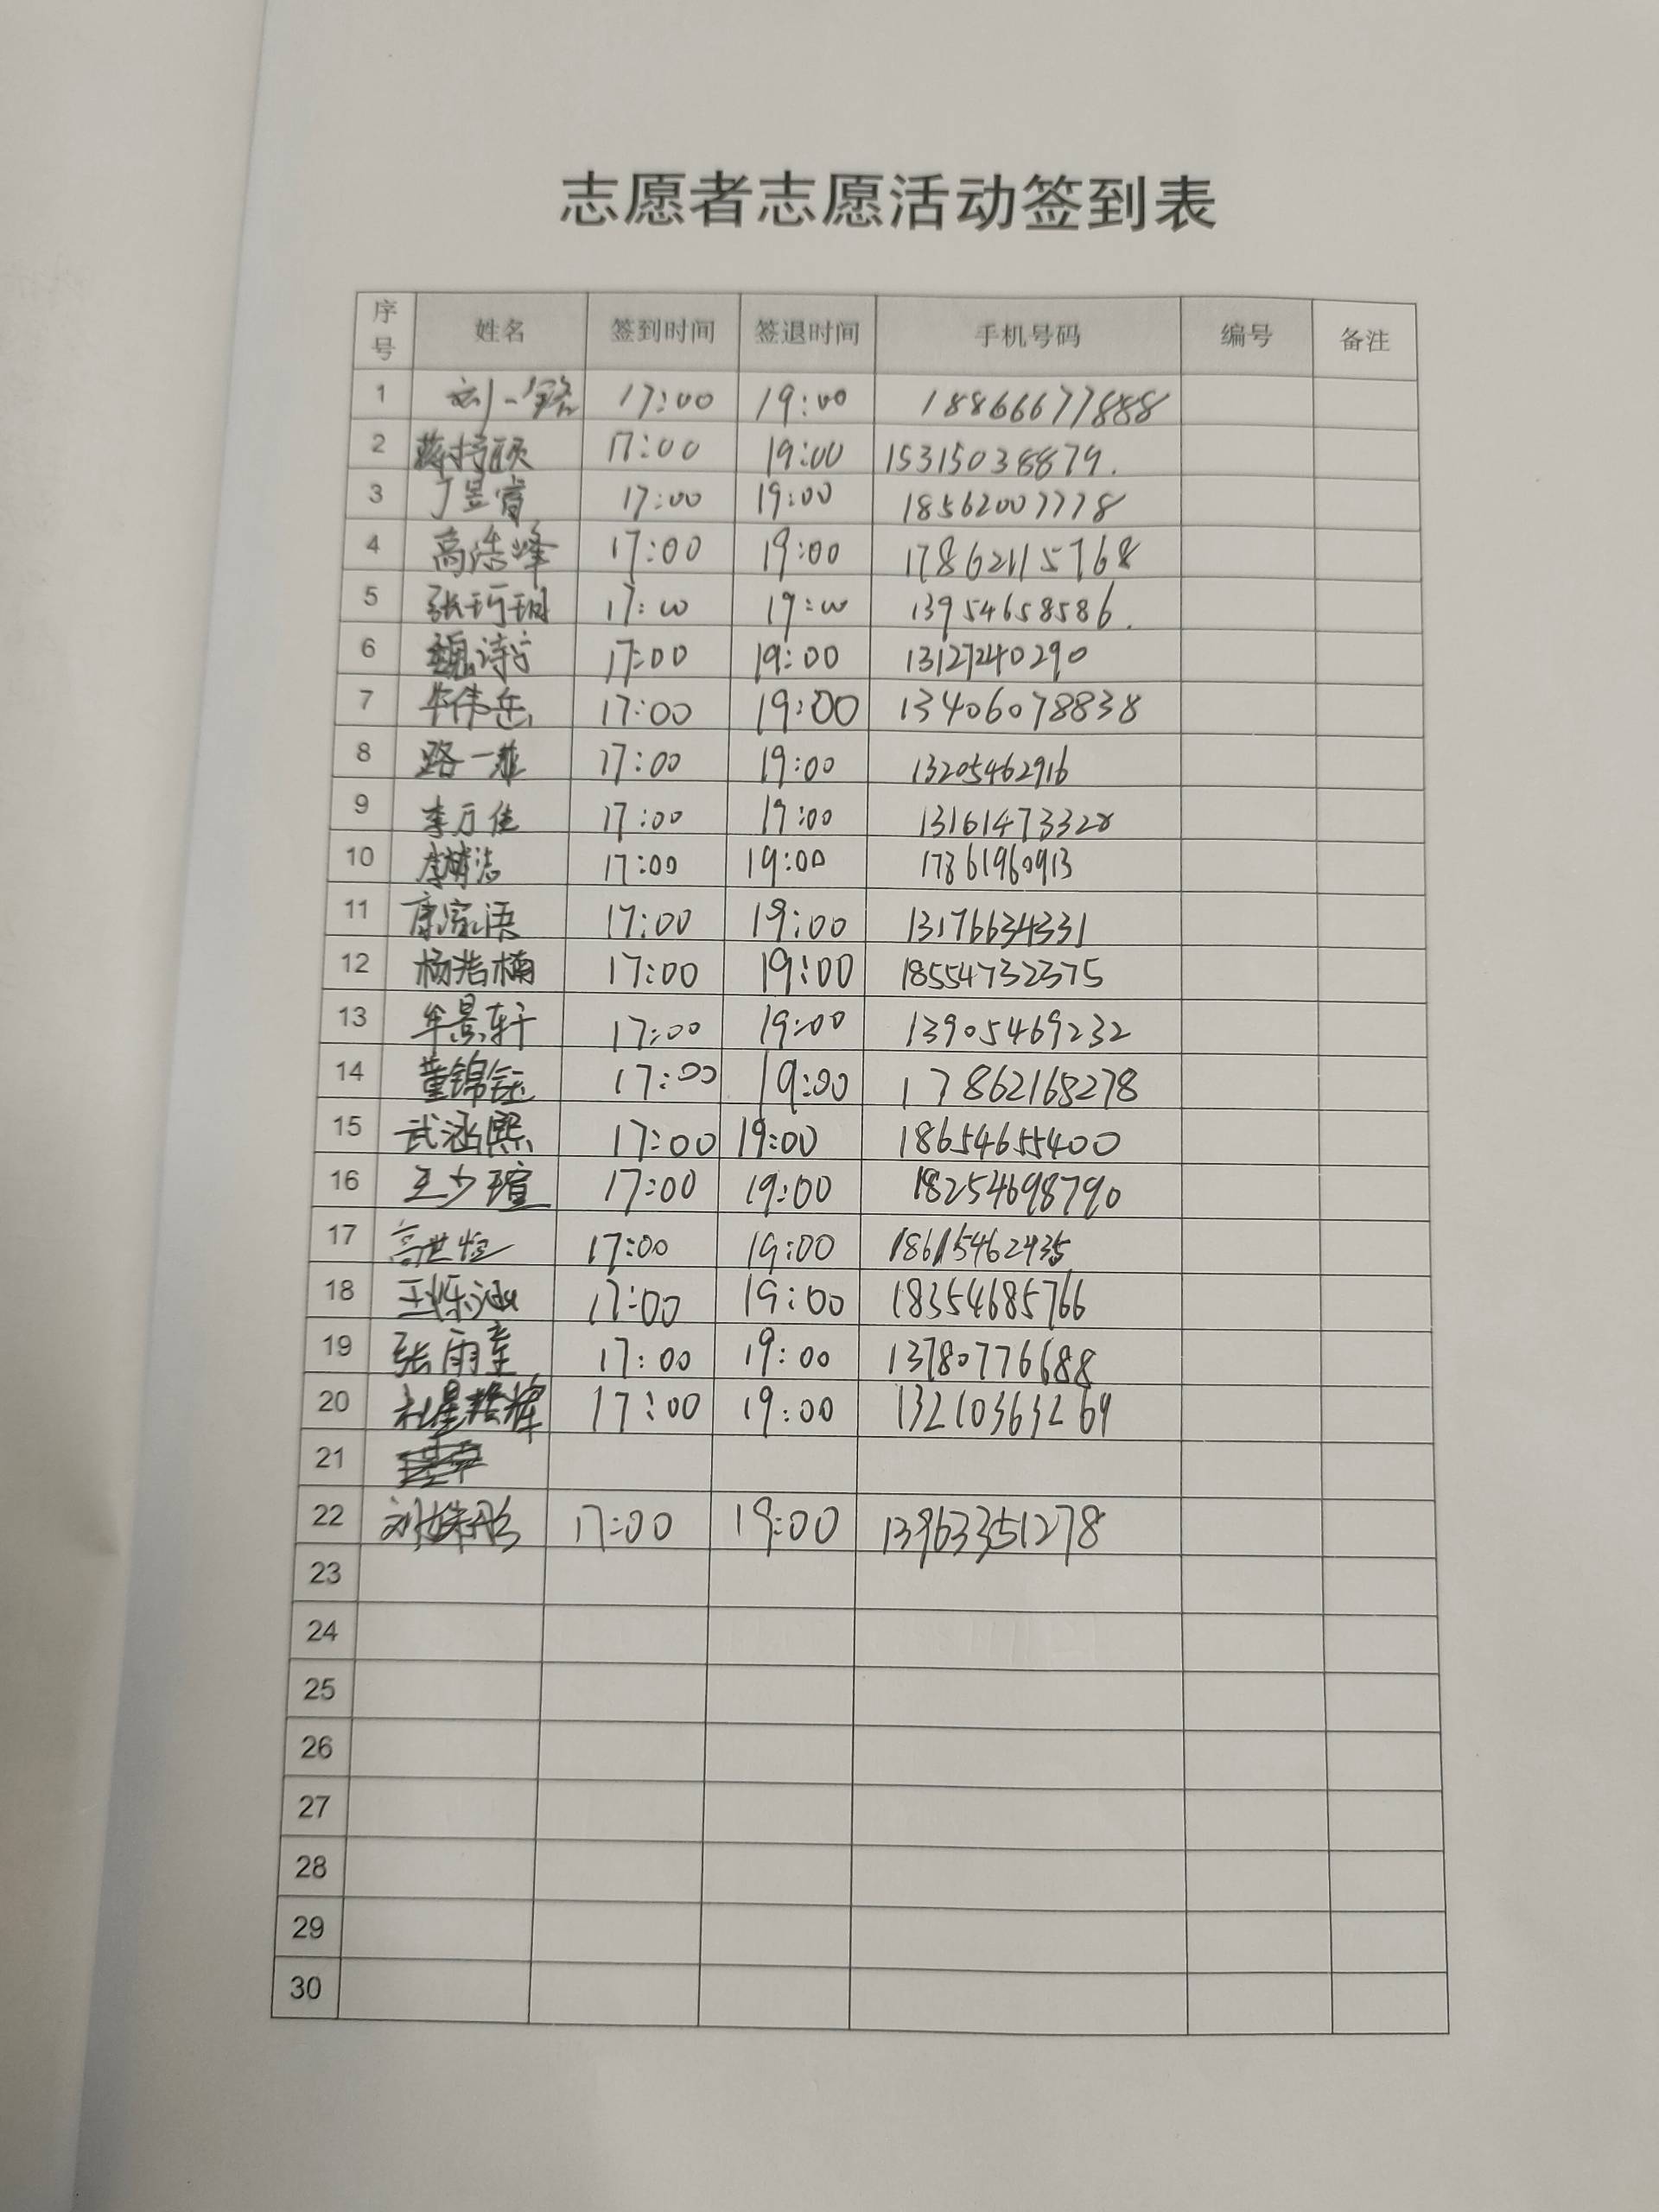 志愿者志愿活动签到表
序号 姓名 签到时间 签退时间 手机号码 编号 备注
1 刘一 17:00 19:00 18866677888
2 17:00 19:00 15315038879.
3 丁昱睿 17:00 19:00 18562007778
4 高浩峰 17:00 19:00 17862115768
5 张珂珊 17:00 19:00 13954658586.
6 魏诗 17:00 19:00 13127240290
7 牟伟岳 17:00 19:00 13406078838
8 路一菲 17:00 19:00 13205462916
9 李万佳 17:00 19:00 13161473328
10 17:00 19:00 17861960913
11 康家语 17:00 19:00 13176634331
12 杨浩楠 17:00 19:00 18554732375
13 牟景轩 17:00 19:00 13905469232
14 董锦钰 17:00 19:00 17862165278
15 武涵熙 17:00 19:00 18654655400
16 王少瑄 17:00 19:00 18254698790
17 高世恒 17:00 19:00
18 王烁涵 17:00 19:00 18354685766
19 张雨童 17:00 19:00 13780776688
20 17:00 19:00 13210363269
21
22 刘姝彤 17:00 19:00 13963351278
23
24
25
26
27
28
29
30